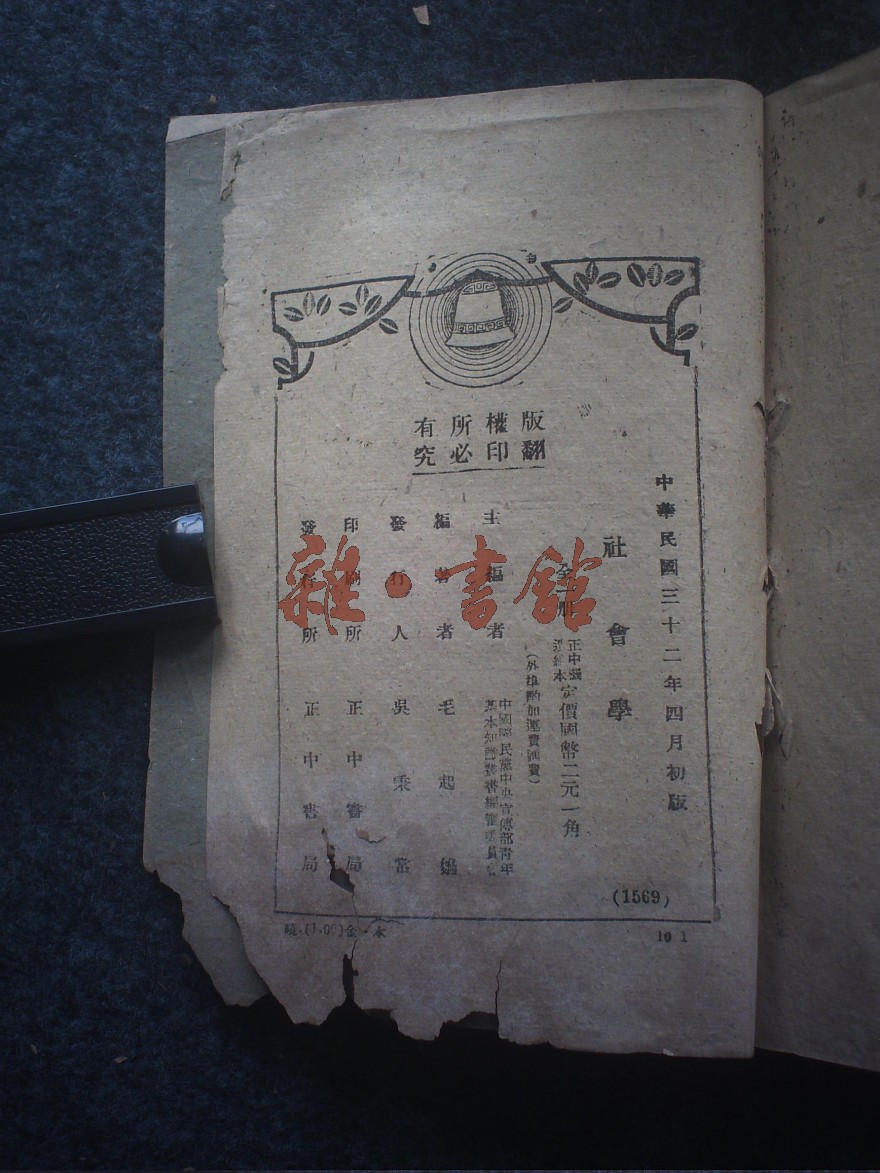 版權所有
翻印必究
中華民國三十二年四月初版
社會學
全一冊
正中 本
定價國幣二元一角
(外埠酌加運費匯費)
主編者 中國國民黨中央宣傳部青年
基本知識叢書編 委員會
編著者 毛起
發行人 吳秉常
印刷所 正中書局
發行所 正中書局
(1569)
10 1
雜·書館